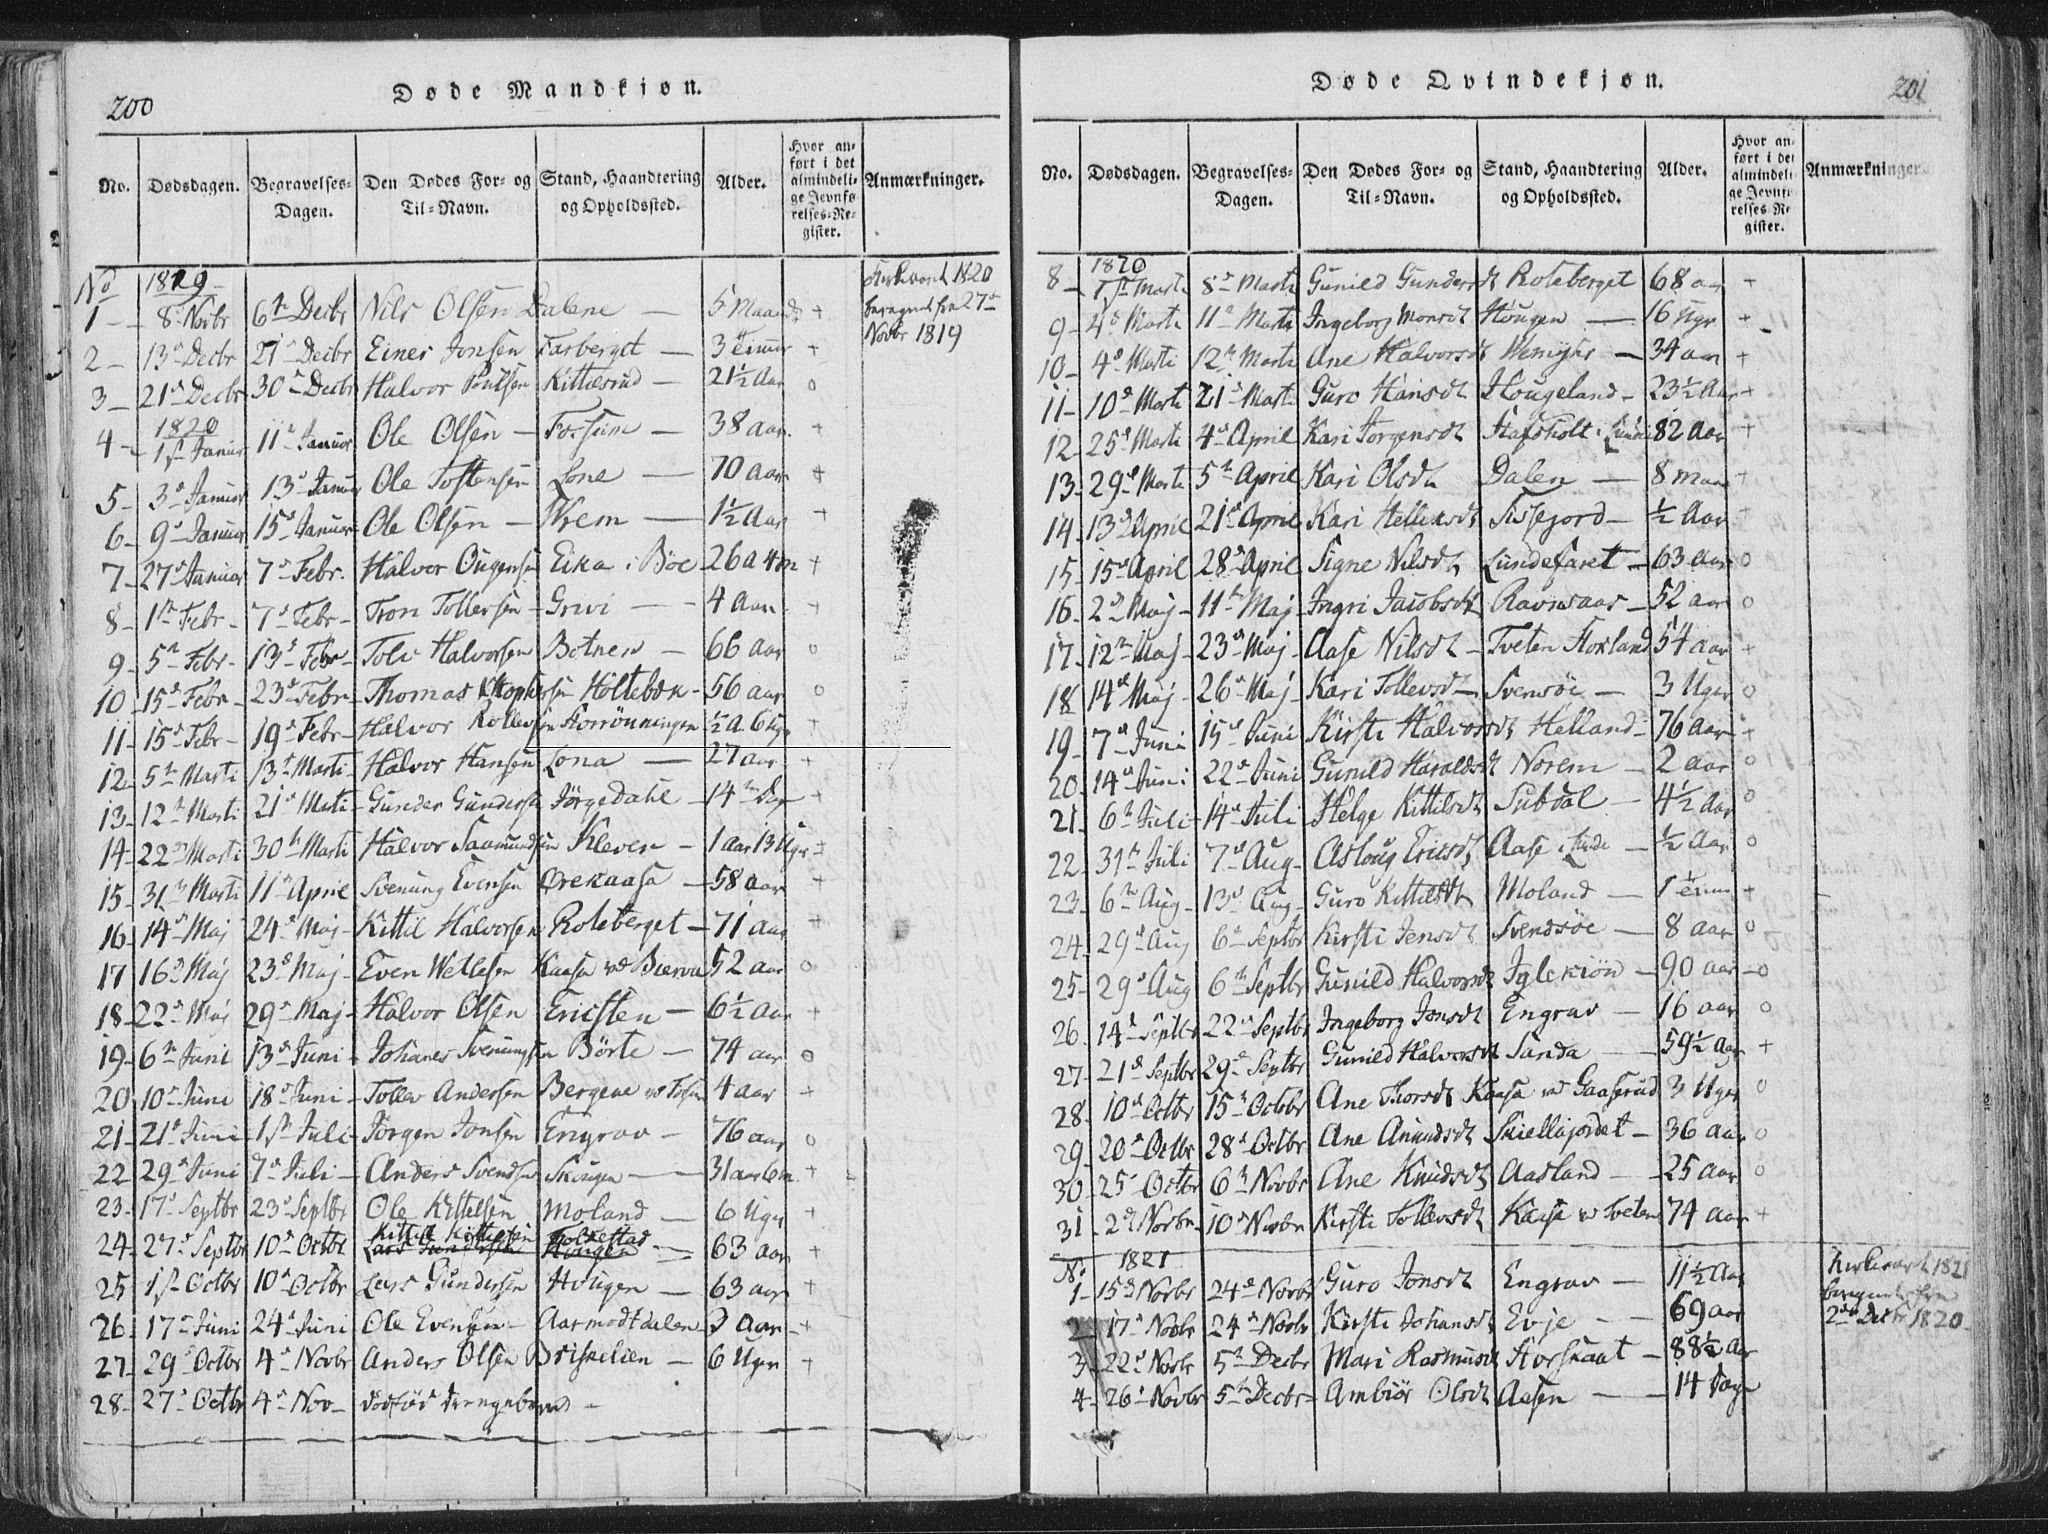 200
Døde Mandkjøn.
No. Dødsdagen. Begravelses-Dagen. Den Dødes For- og Til-Navn. Stand, Haandtering og Opholdssted. Alder. Hvor anført i det almindelige Jevnførelses-Register. Anmærkninger.
No 1819 Kirkeaaret 1820 beregnes fra 27d Novbr 1819
1 - 8 Novbr 6te Decbr Nils Olsen Dalene - 5 Maand +
2 - 13d Decbr 21d Decbr Einer Jonsen Farberget - 3 +
3 - 21d Decbr 30d Decbr Halvor Poulsen Kittilsrud - 21½ Aar o
1820
4 - 1st Januar 11d Januar Ole Olsen - Fossum - 38 aar +
5 - 3d Januar 13d Januar Ole Tostensen Lone - 70 aar +
6 - 9d Januar 15d Januar Ole Olsen - Krem - 1½ Aar +
7 - 27d Januar 7d Febr. Halvor Ougensen Eika i Böe - 26 a 4m +
8 - 1ste Febr - 7d Febr - Tron Tollefsen - Grivi - 4 Aar +
9 - 5te Febr - 13d Febr - Tolv Halvorsen Botnen - 66 aar o
10 - 15d Febr - 23d Febr - Thomas Kitophersen Holtebæk - 56 aar o
11 - 15d Febr - 19d Febr - Halvor Rollevsen Horrönningen ½ a. 6 Uge +
12 - 5te Marti 13d Marti - Halvor Hansen Lona - 27 aar +
13 - 12te Marti 21d Marti - Gunder Gundersen Jörgedahl - 14 Dage +
14 - 22d Marti 30te Marti Halvor Saamundsen Kleven - 1 aar 13 Uger +
15 - 31te Marti 11d April Svenung Evensen Orekaasa - 58 aar +
16 - 14d Maj 24d Maj - Kittil Halvorsen Roleberget - 71 aar +
17 16d Maj 23d Maj - Even Wetlesen Kaasa vd Bierva 52 aar o
18 - 22d Maj 29d Maj - Halvor Olsen Ericsten - 6½ Aar +
19 - 6te Juni 13d Juni - Johanes Svenungsen Börte - 74 aar o
20 10d Juni 18d Juni - Tollev Andersen Bergene vd Fossum 4 aar +
21 - 21d Juni 1st Juli - Jörgen Jonsen Engrav - 76 aar o
22 - 29d Juni 7d Juli - Anders Svendsen Skougen - 31 aar 6m +
23 - 17d Septbr 23d Septbr Ole Kittelsen Moland - 6 Uger +
24 - 27d Septbr 10d Octbr. Kittil Kittilsen Folkestad Lars Gundersen Hougen - 63 aar +
25 1st Octbr 10d Octbr Lars Gundersen Hougen - 63 aar +
26 - 17d Juni 24d Juni Ole Evensen - Aarmodtdalen 3 Aar - +
27 - 29d Octbr 4d Novbr Anders Olsen Briskelien - 6 Uger +
28 - 27d Octbr 4d Nov - dödföd Drengebarn -
201
Døde Qvindekjøn.
No. Dødsdagen. Begravelses-Dagen. Den Dødes For- og Til-Navn. Stand, Haandtering og Opholdssted. Alder. Hvor anført i det almindelige Jevnførelses-Register. Anmærkninger.
1820
8 - 1st Marti 8d Marti Gunild Gundersdt Roleberget 68 aar +
9 - 4d Marti 11d Marti Ingeborg Monsdt Hougen - 16 Uger +
10 - 4d Marti 12te Marti Ane Halvorsdt - 34 aar +
11 - 10d Marti 21d Marti Guro Hansdt Hougeland - 23½ Aar +
12 - 25d Marti 4d April Kari Jorgensdt Hafsholt i Lunde 82 aar +
13 - 29d Marti 5te April Kari Olsdt Dalen - 8 maan +
14 - 13d April 21d April Kari Helliksdt Sissejord - ½ Aar +
15 - 15d April 28d April Signe Nilsdt Lundefaret - 63 aar o
16 - 2d Maj - 11te Maj - Ingri Jacobsdt Ravnaas - 52 aar o
17 - 12te Maj - 23d Maj - Aase Nilsdt - Tveten Flotland 54 aar +
18 14d Maj - 26d Maj - Kari Tollevsdt Svensöe - 3 Uger o
19 - 7d Juni 15d Juni Kirsti Halvorsdt Helland - 76 aar +
20 - 14d Juni 22d Juni Gunild Haraldsdt Norem - 2 aar o
21 - 6te Juli 14d Juli Helge Kittilsdt Subdal - 4½ Aar o
22 - 31te Juli 7d Aug - Aslaug Ericsdt Aase i Lunde - ½ Aar o
23 - 6te Aug - 13d Aug - Guro Kittilsdt Moland - 1 +
24 - 29d Aug 6d Septbr Kirsti Jensdt Svendsöe - 8 aar o
25 - 29d Aug 6te Septbr Gunild Halvorsdt Iglekiön - 90 aar - o
26 - 14d Septbr 22d Septbr Ingeborg Jonsdt Engrav - 16 aar o
27 - 21d Septbr 29d Septbr Gunild Halvorsdt Sanda - 59½ aar +
28 - 10d Octbr 15te Octobr Ane Thorsdt Kaasa vd Gaaserud 3 Uger o
29 - 20d Octbr 28d Octbr Ane Amundsdt Skiellajordet - 36 aar o
30 - 25d Octbr 6te Novbr Ane Knudsdt Aasland - 25 aar o
31 2d Novbr 10d Novbr Kirsti Tollevsdt Kaasa vd Tveten 74 aar +
No 1821 Kirkeaaret 1821 beregnes fra 2den Decbr 1820
1 - 15d Novbr 24d Novbr Guro Jonsdt Engrav - 11½ Aar
2 17d Novbr 24d Novbr Kirsti Johansdt Evje - 69 aar
3 - 22d Novbr 5te Decbr Mari Rasmusdt Horskaat - 88½ Aar
4 - 26d Novbr 5te Decbr - Ambiör Olsdt Aasen - 14 Dage